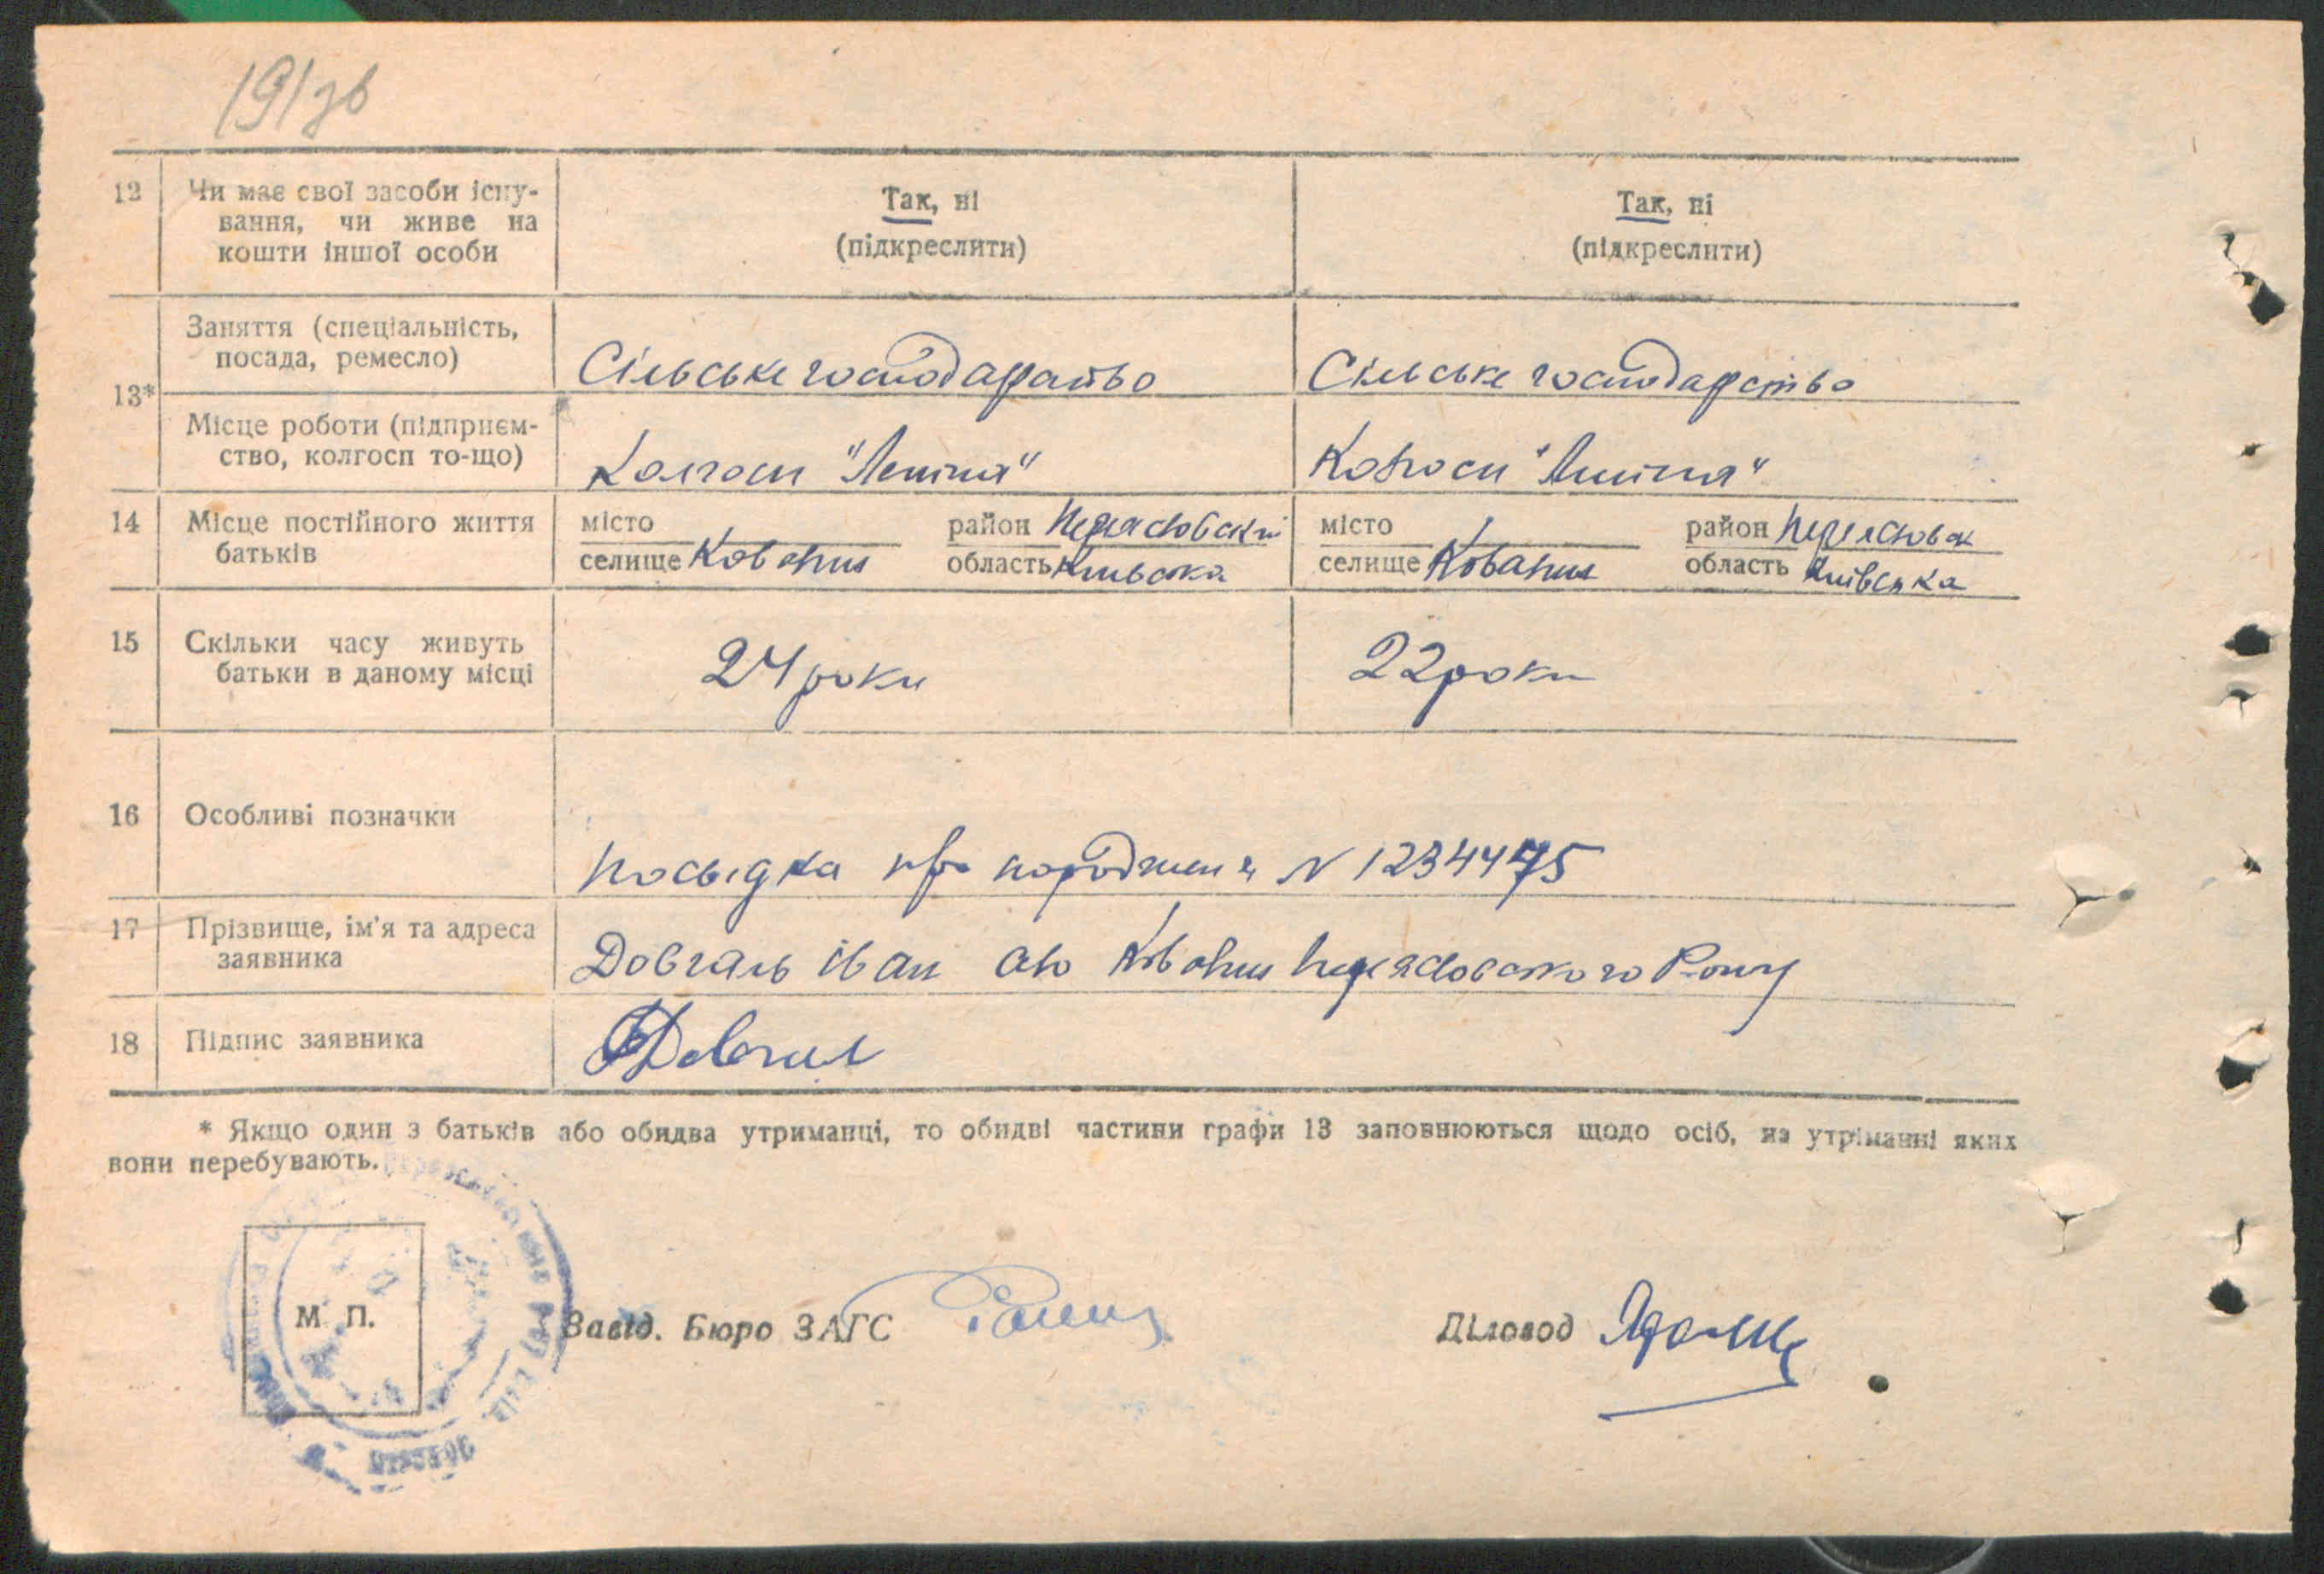 191зв
12 Чи має свої засоби існу-
вання, чи живе на
кошти іншої особи
Так, ні
(підкреслити)
Так, ні
(підкреслити)
13*
Заняття (спеціальність,
посада, ремесло)
Сільське господарство
Сільське господарство
Місце роботи (підприєм-
ство, колгосп то-що)
Колгосп "Леніна"
Колгосп "Леніна"
14 Місце постійного життя
батьків
місто
селище Ковалин
район Переясловский
область Київська
місто
селище Ковалин
район Переясловск
область Київська
15 Скільки часу живуть
батьки в даному місці
24 роки
22 роки
16 Особливі позначки
Посвідка про народження N 1234475
17 Прізвище, ім'я та адреса
заявника
Довгаль Іван село Ковалин Переясловского Р-ону
18 Підпис заявника
Довгал
* Якщо один з батьків або обидва утриманці, то обидві частини графи 13 заповнюються щодо осіб, на утріманні яких
вони перебувають.
М П.
Завід. Бюро ЗАГС
Діловод